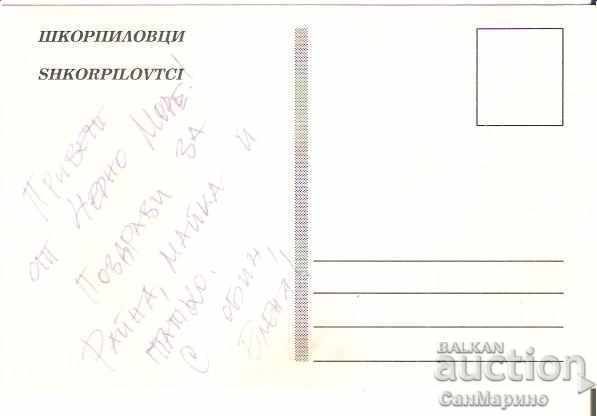 ШКОРПИЛОВЦИ
SHKORPILOVTCI
Привет
от Черно Море!
Поздрави за
Райна, майка и
татко.
С обич,
Елена!
BALKAN
auction
СанМарино